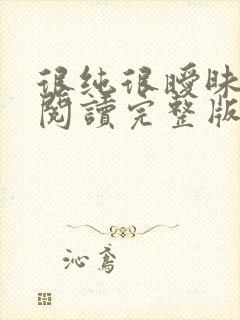 很纯很曖昧
閱讀完整版
沁鸢